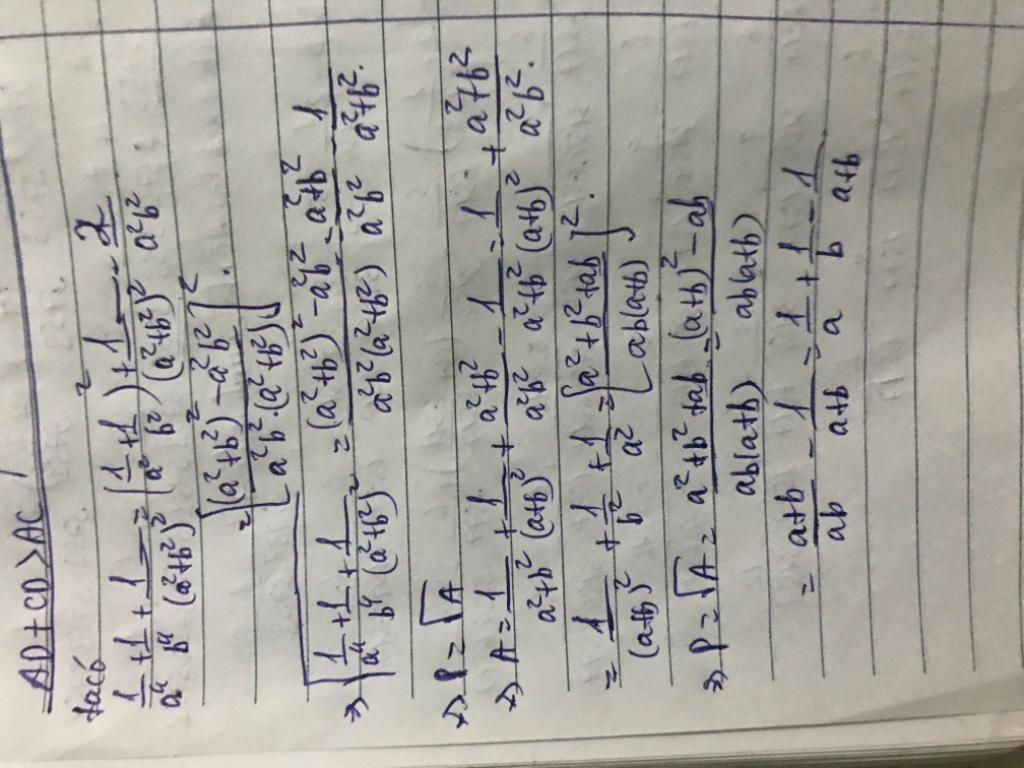 AD + CD > AC
ta có
1/a⁴ + 1/b⁴ + 1/(a²+b²)² = (1/a² + 1/b²)² + 1/(a²+b²)² - 2/a²b²
= [((a²+b²)² - a²b²)/(a²b².(a²+b²))]².
=> √(1/a⁴ + 1/b⁴ + 1/(a²+b²)²) = ((a²+b²)² - a²b²)/(a²b²(a²+b²)) = (a²+b²)/a²b² - 1/(a²+b²).
=> P = √A
=> A = 1/(a²+b²) + 1/(a+b)² + (a²+b²)/a²b² - 1/(a²+b²) = 1/(a+b)² + (a²+b²)/a²b².
= 1/(a+b)² + 1/b² + 1/a² = [(a²+b²+ab)/(ab(a+b))]².
=> P = √A = (a²+b²+ab)/(ab(a+b)) = ((a+b)² - ab)/(ab(a+b))
= (a+b)/ab - 1/(a+b) = 1/a + 1/b - 1/(a+b)